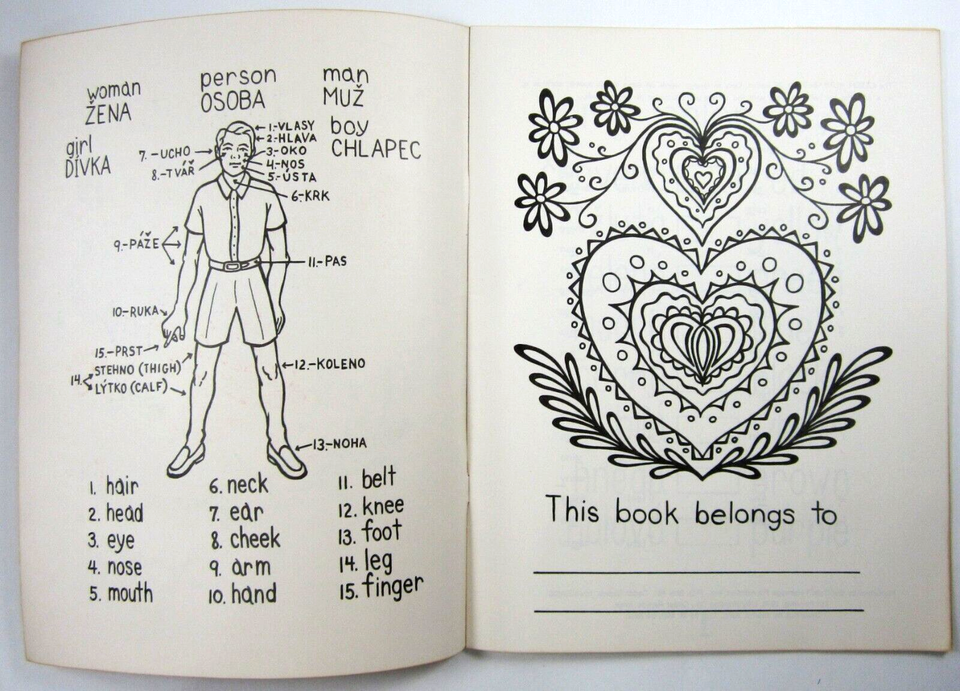 woman
ŽENA
person
OSOBA
man
MUŽ
girl
DÍVKA
boy
CHLAPEC
1.-VLASY
2.-HLAVA
3.-OKO
4.-NOS
5.-ÚSTA
6.-KRK
7.-UCHO
8.-TVÁŘ
9.-PÁŽE
11.-PAS
10.-RUKA
15.-PRST
14. STEHNO (THIGH)
LÝTKO (CALF)
12.-KOLENO
13.-NOHA
1. hair
2. head
3. eye
4. nose
5. mouth
6. neck
7. ear
8. cheek
9. arm
10. hand
11. belt
12. knee
13. foot
14. leg
15. finger
This book belongs to